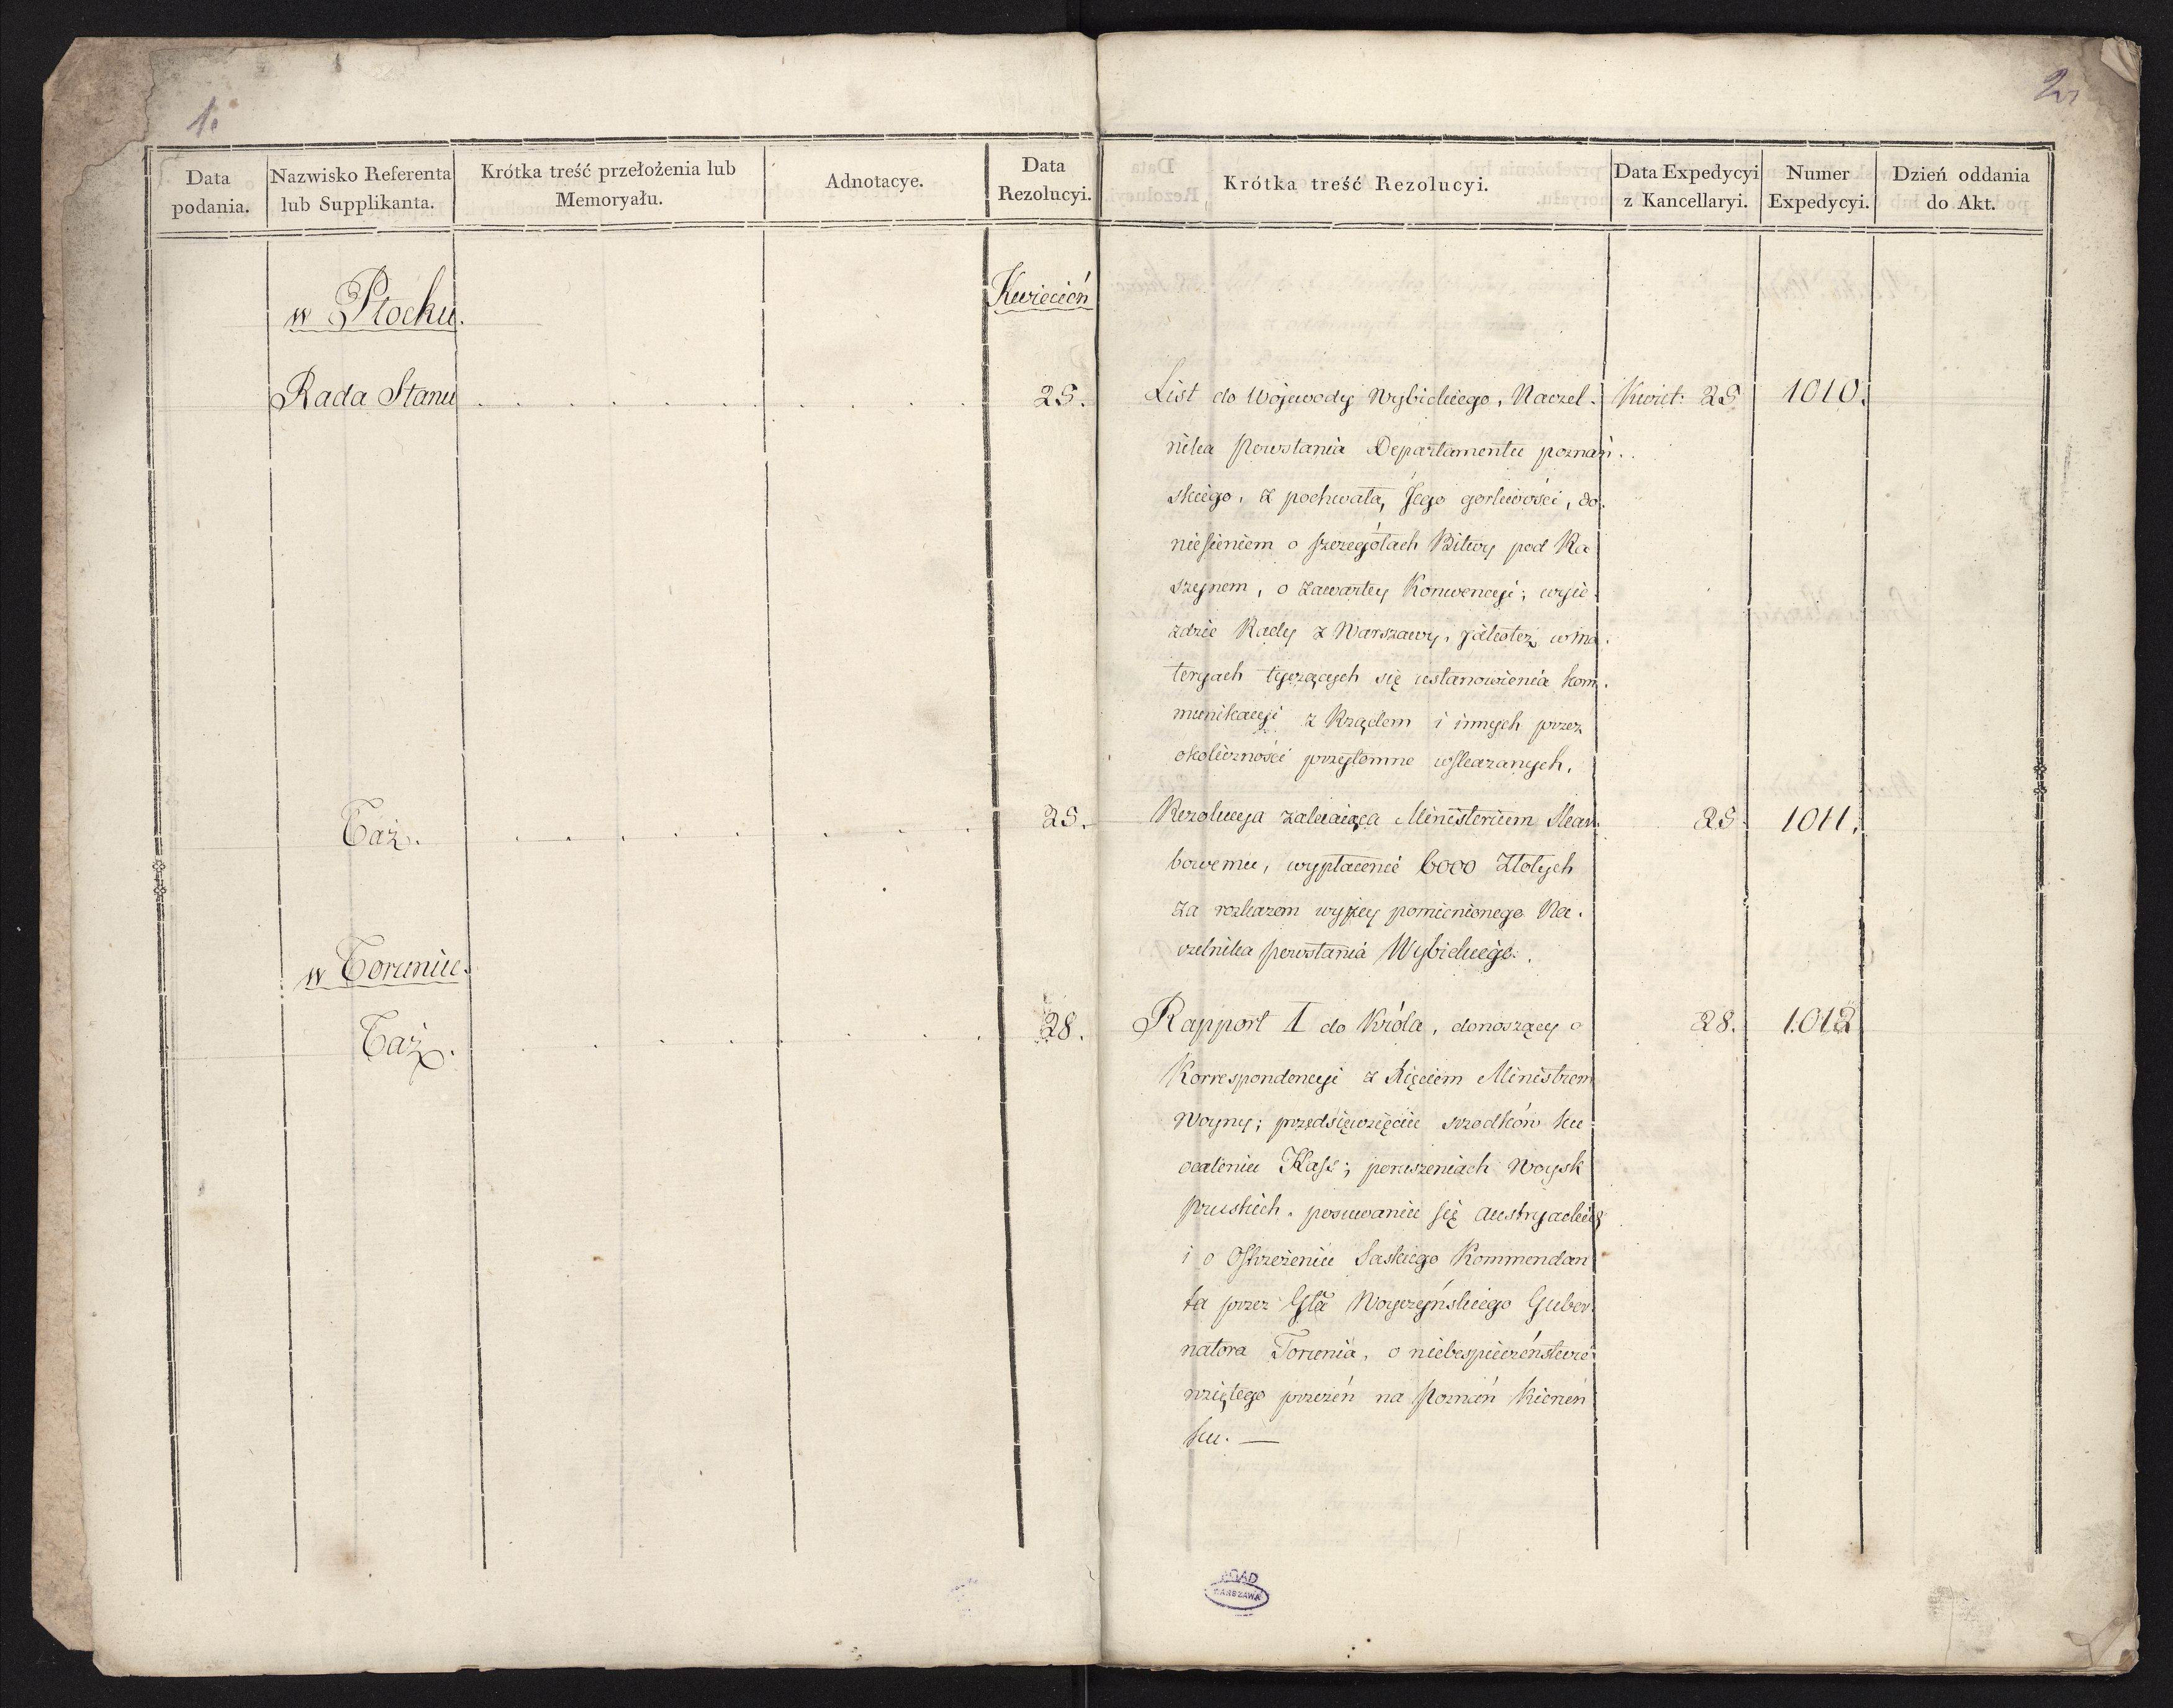 1.
2
Data podania.
Nazwisko Referenta lub Supplikanta.
Krótka treść przełożenia lub Memoryału.
Adnotacye.
Data Rezolucyi.
Krótka treść Rezolucyi.
Data Expedycyi z Kancellaryi.
Numer Expedycyi.
Dzień oddania do Akt.
w Płocku.
Kwiecień
Rada Stanu . . . . . . . . . . 25. List do Wojewody Wybickiego, Naczel- Kwiet: 25 1010.
nika powstania Departamentu poznań-
skiego, z pochwałą Jego gorliwości, do-
niesieniem o szczegółach Bitwy pod Ra
szynem, o zawartey Konwencyi; wyie-
zdzie Rady z Warszawy, jakoteż w ma-
teryach tyczących się ustanowienia kom-
munikacyi z Rządem i innych przez
okoliczności przytomne wskazanych.
Taż. . . . . . . . . 25. Rezolucya zalecaiąca Ministerium Skar- 25. 1011.
bowemu, wypłacenie 6000 Złotych
za rozkazem wyżey pomienionego Na-
czelnika powstania Wybickiego.
w Toruniu.
Taż. . . . . . . . . 28. Rapport I do Króla, donoszący o 28. 1012
Korrespondencyi z Xięciem Ministrem
Woyny; przedsięwzięciu srzodków ku
ocaleniu Kass; poruszeniach Woysk
Pruskich, posuwaniu się Austryackich
i o Ostrzeżeniu Saskiego Kommendan
ta przez Gła Woyczyńskiego Guber-
natora Torunia, o niebespieczeństwie
wziętego przezeń na Poznań kierun
ku. —
AGAD
WARSZAWA